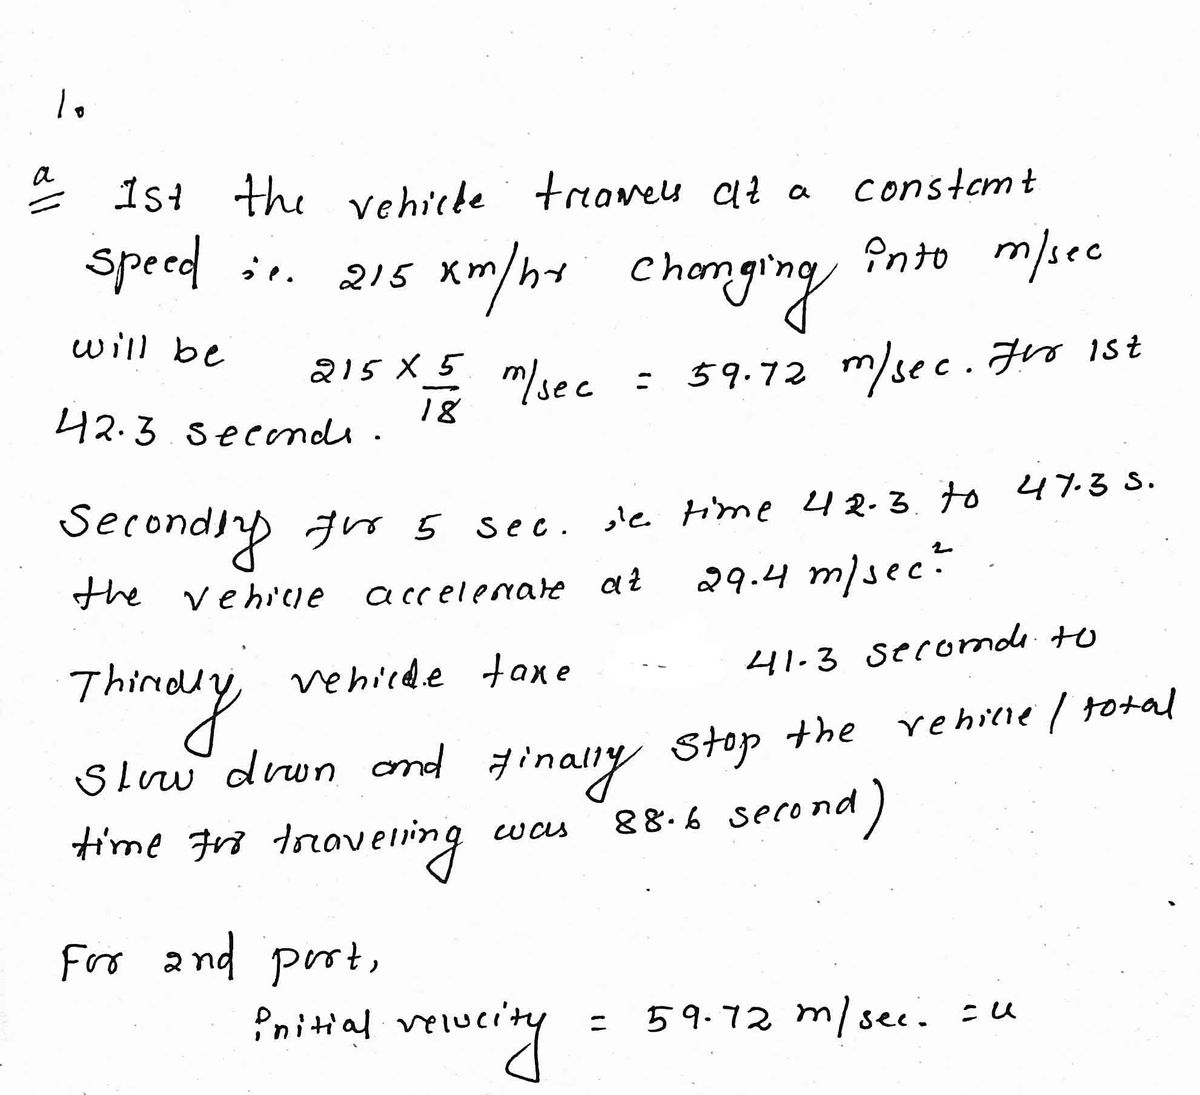 1.
a 1st the vehicle travels at a constant
speed ie. 215 km/hr changing into m/sec
will be 215 × 5/18 m/sec = 59.72 m/sec. For 1st
42.3 seconds.
Secondly for 5 sec. ie time 42.3 to 47.3 s.
the vehicle accelerate at 29.4 m/sec².
Thirdly vehicle take -- 41.3 seconds to
slow down and finally stop the vehicle / total
time for travelling was 88.6 second)
For 2nd part,
initial velocity = 59.72 m/sec. = u